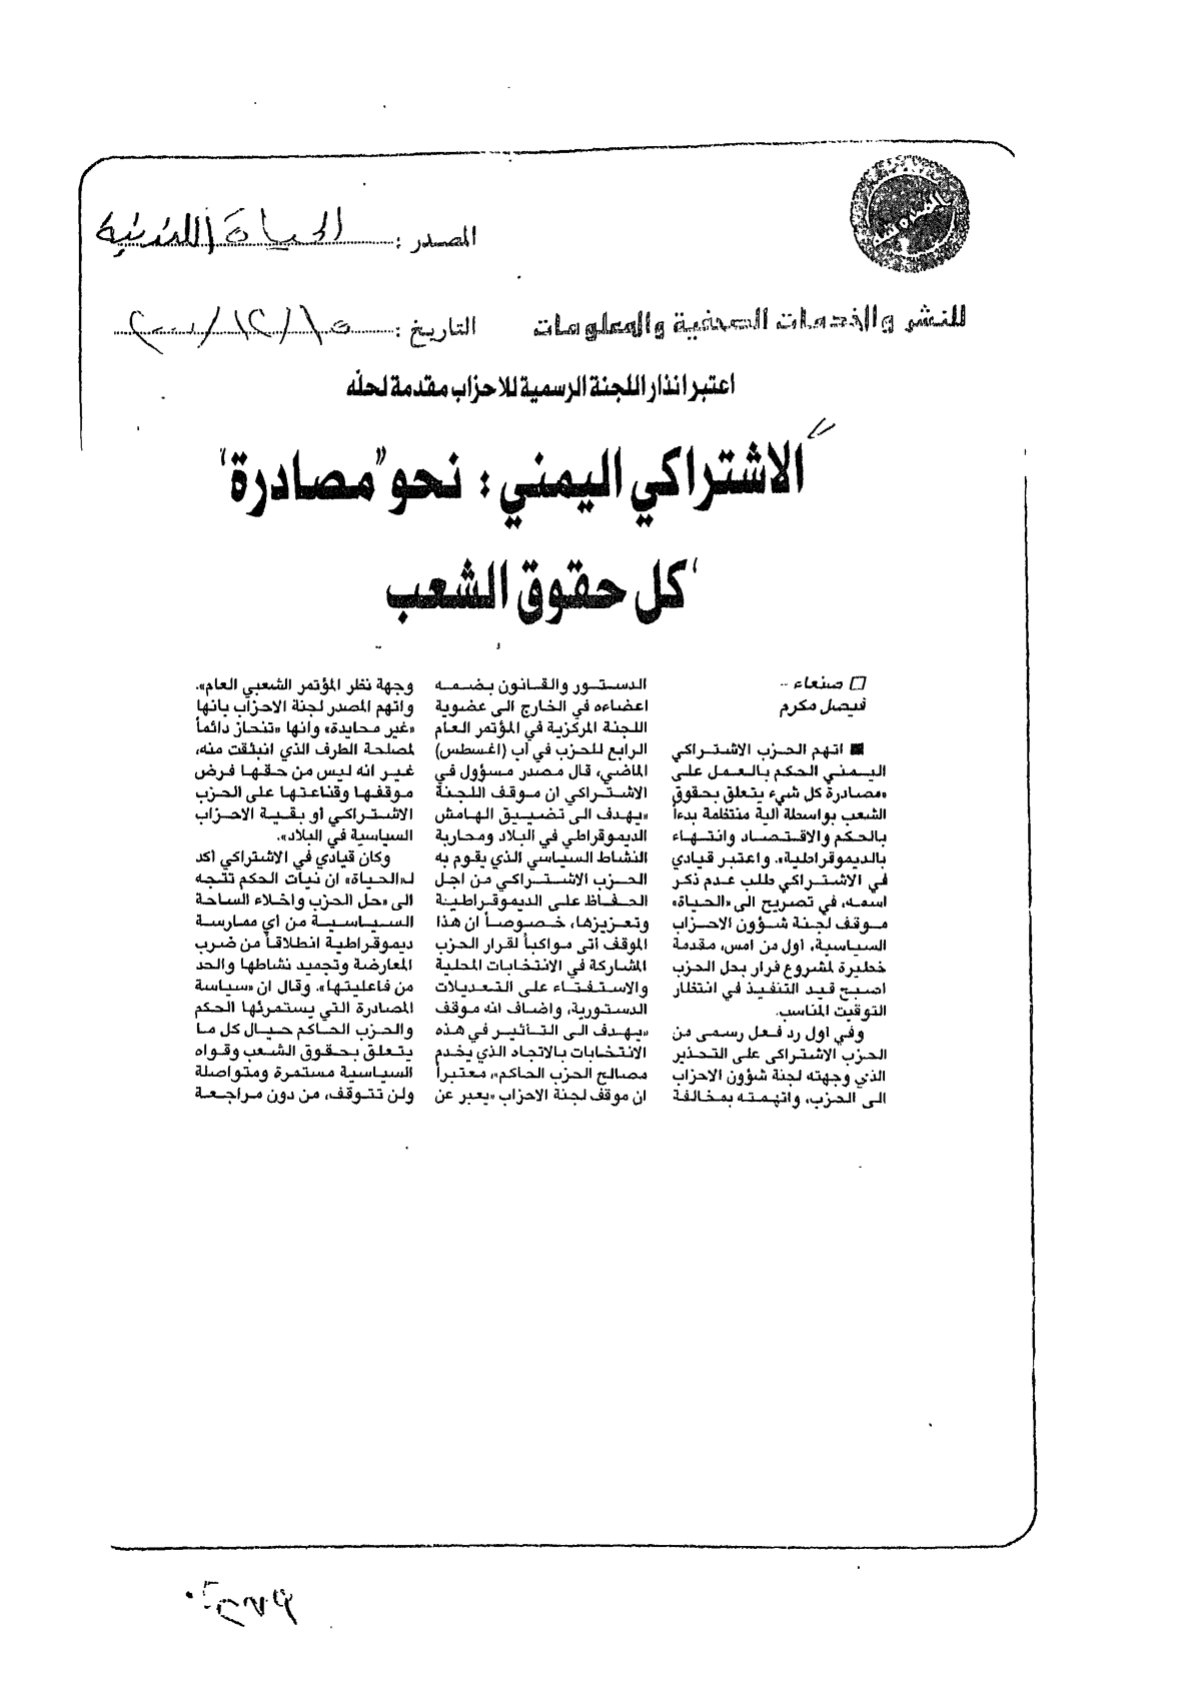 المصدر : الحياة اللندنية
للنشر والخدمات الصحفية والمعلومات
التاريخ : ١٥/١٢/٢٠٠٠
اعتبر انذار اللجنة الرسمية للاحزاب مقدمة لحله
الاشتراكي اليمني : نحو "مصادرة
كل حقوق الشعب
□ صنعاء -
فيصل مكرم
■ اتهم الحزب الاشتراكي
اليمني الحكم بالعمل على
«مصادرة كل شيء يتعلق بحقوق
الشعب بواسطة آلية منتظمة بدءاً
بالحكم والاقتصاد وانتهاء
بالديموقراطية». واعتبر قيادي
في الاشتراكي طلب عدم ذكر
اسمه، في تصريح الى «الحياة»
موقف لجنة شؤون الاحزاب
السياسية، اول من امس، مقدمة
خطيرة لمشروع قرار بحل الحزب
اصبح قيد التنفيذ في انتظار
التوقيت المناسب.
وفي اول رد فعل رسمي من
الحزب الاشتراكي على التحذير
الذي وجهته لجنة شؤون الاحزاب
الى الحزب، واتهمته بمخالفة
الدستور والقانون بضمه
اعضاءه في الخارج الى عضوية
اللجنة المركزية في المؤتمر العام
الرابع للحزب في آب (اغسطس)
الماضي، قال مصدر مسؤول في
الاشتراكي ان موقف اللجنة
«يهدف الى تضييق الهامش
الديموقراطي في البلاد ومحاربة
النشاط السياسي الذي يقوم به
الحزب الاشتراكي من اجل
الحفاظ على الديموقراطية
وتعزيزها، خصوصاً ان هذا
الموقف اتى مواكباً لقرار الحزب
المشاركة في الانتخابات المحلية
والاستفتاء على التعديلات
الدستورية، واضاف انه موقف
«يهدف الى التأثير في هذه
الانتخابات بالاتجاه الذي يخدم
مصالح الحزب الحاكم»، معتبراً
ان موقف لجنة الاحزاب «يعبر عن
وجهة نظر المؤتمر الشعبي العام».
واتهم المصدر لجنة الاحزاب بانها
«غير محايدة» وانها «تنحاز دائماً
لمصلحة الطرف الذي انبثقت منه،
غير انه ليس من حقها فرض
موقفها وقناعتها على الحزب
الاشتراكي أو بقية الاحزاب
السياسية في البلاد».
وكان قيادي في الاشتراكي اكد
لـ«الحياة» ان نيات الحكم تتجه
الى «حل الحزب واخلاء الساحة
السياسية من اي ممارسة
ديموقراطية انطلاقاً من ضرب
المعارضة وتجميد نشاطها والحد
من فاعليتها». وقال ان «سياسة
المصادرة التي يستمرئها الحكم
والحزب الحاكم حيال كل ما
يتعلق بحقوق الشعب وقواه
السياسية مستمرة ومتواصلة
ولن تتوقف، من دون مراجعة